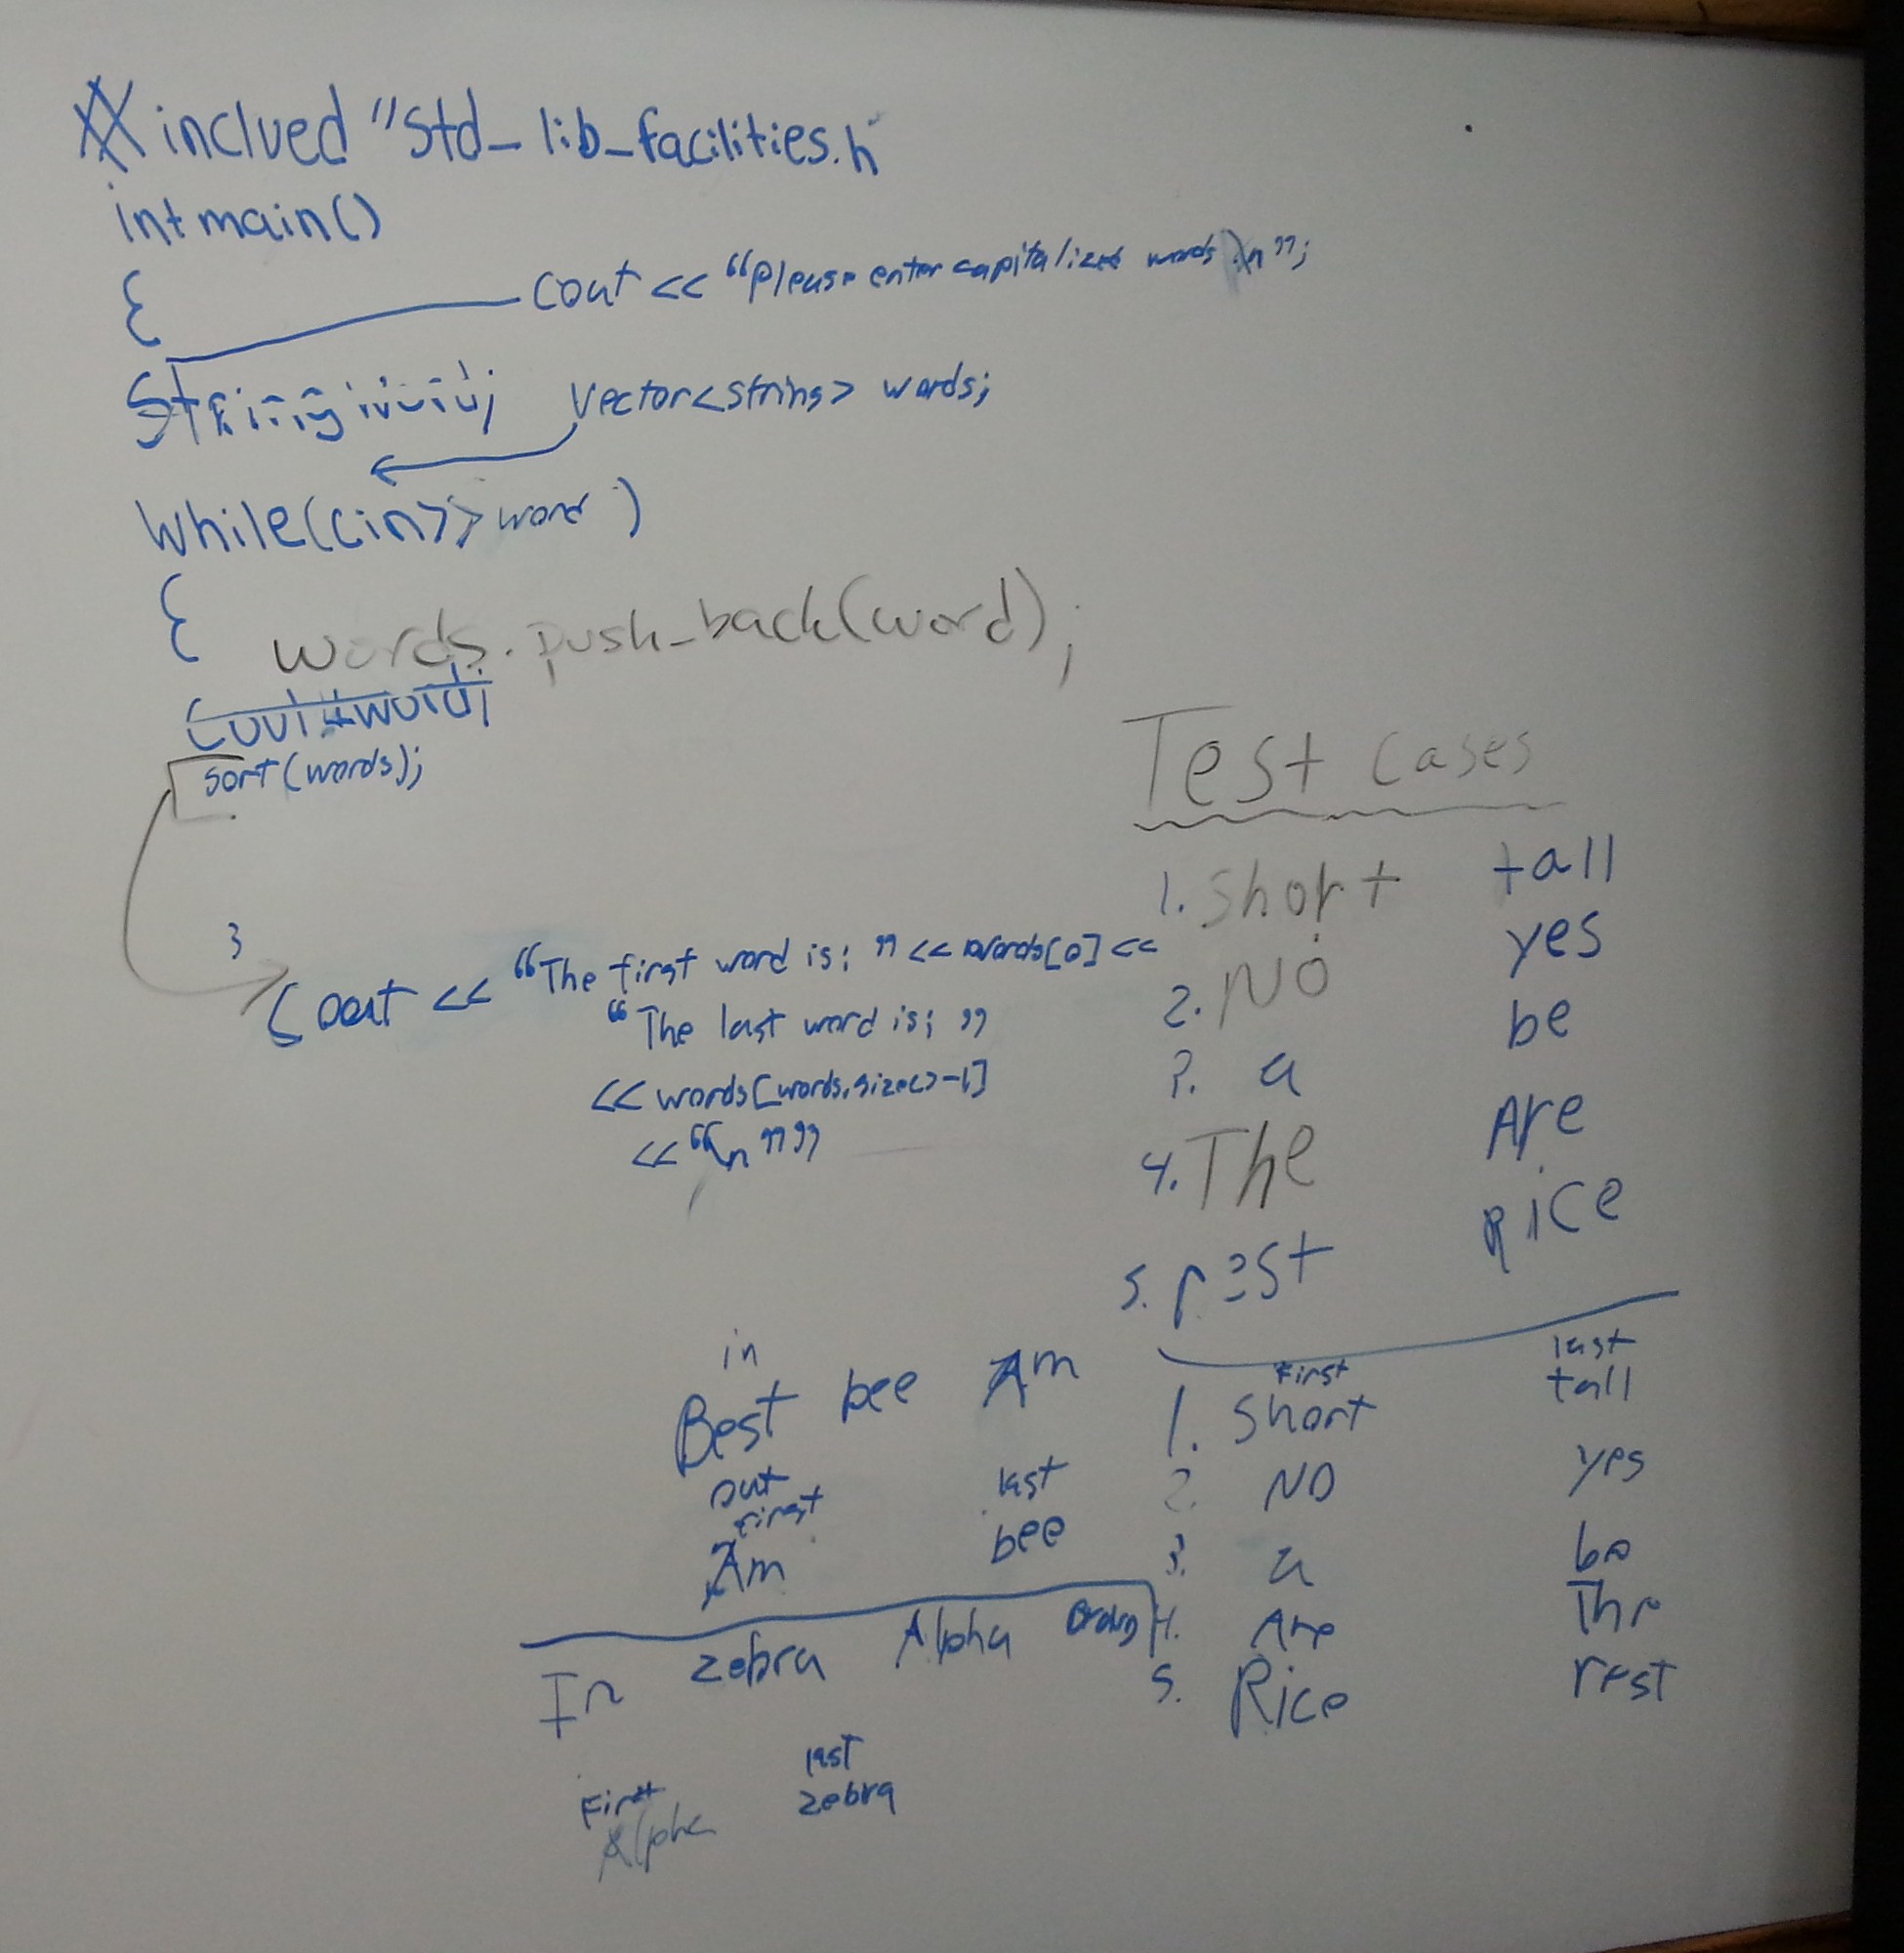 # inclued "std_lib_facilities.h"
int main()
{
cout << "please enter capitalized words \n";
String word;
vector<string> words;
while(cin>> word )
{
words.push_back(word);
sort(words);
3
cout << "The first word is: " << words[0] <<
"The last word is: "
<< words[words.size()-1]
<< "\n"
Test cases
1. Short tall
2. No yes
3. a be
4. The Are
5. rest Rice
in
Best bee Am
out
first last
Am bee
In zebra Alpha
First last
Alpha zebra
first last
1. Short tall
2. NO yes
3. a be
4. Are The
5. Rice rest